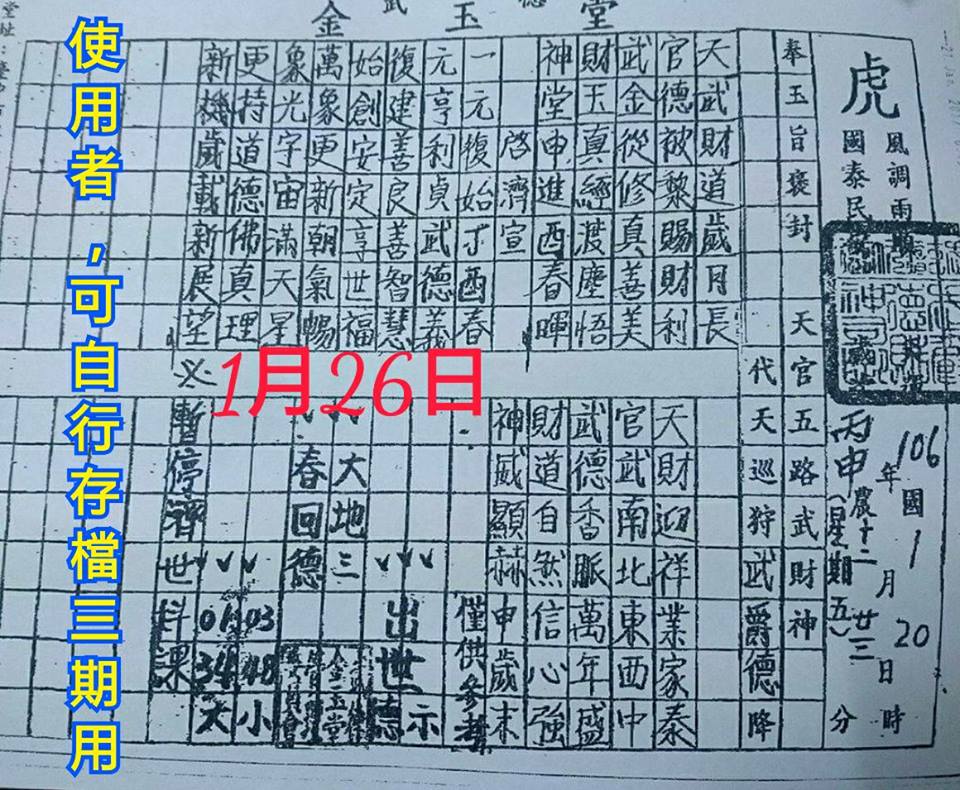 金玉堂
使用者,可自行存檔三期用
1月26日
虎
風調雨順
國泰民
106年1月20日時分
丙申(農十二月廿三)(星期五)
奉玉旨褒封 天官五路武財神
代天巡狩武爵德降
天武財道歲月長
官德被黎賜財利
武金從修真善美
財玉真經渡塵悟
神堂申進酉春暉
啓濟宣
一元複始丁酉春
元亨利貞武德義
復建善良善智慧
始創安定享世福
萬象更新朝氣暢
象光宇宙滿天星
更持道德佛真理
新機歲載新展望
天財迎祥業家泰
官武南北東西中
武德香脈萬年盛
財道自然信心強
神威顯赫申歲末
僅供參考
出世德示
大地三
春回德
03 48 小
01 34 大
暫停濟世科課